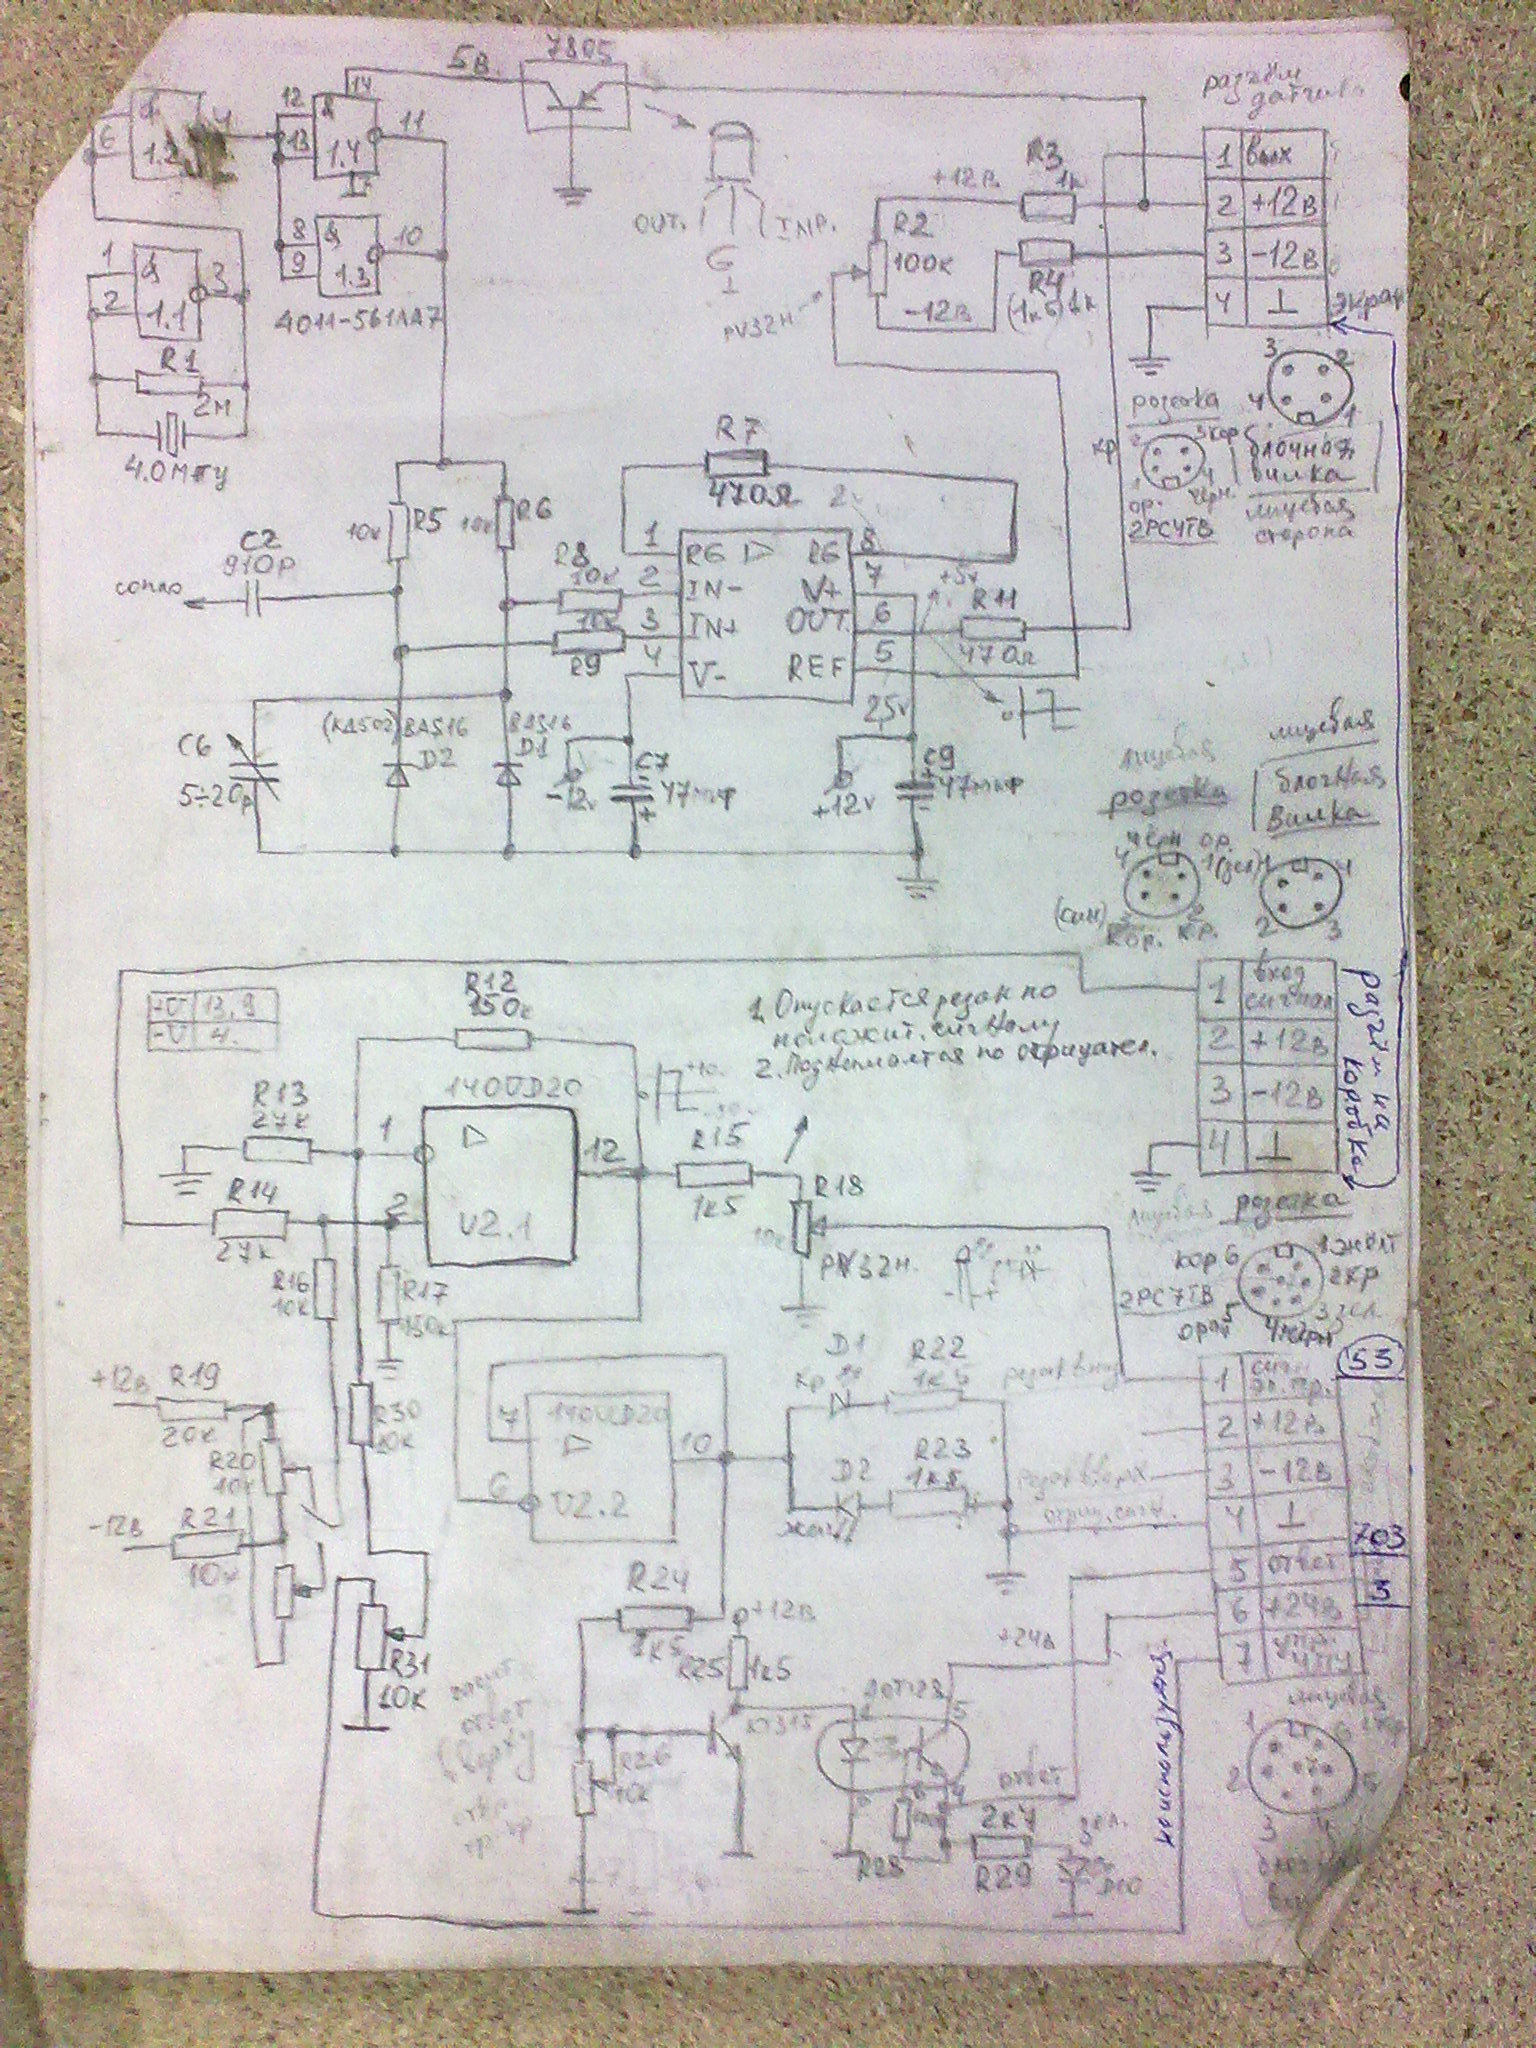 5В
7805
14
12
13
&
1.4
11
6
1.2
4
8
9
&
1.3
10
1
2
&
1.1
3
4011-561ЛА7
R1
2М
4.0МГц
OUT.
G
R2
100к
PV32H
+12В
-12В
R3
1к
R4
разъём
датчика
1 Вых
2 +12В
3 -12В
4 ⊥
экран
3 2
4 1
розетка
кр
2 3 кор
1 4
ор. черн.
2РС4ТВ
блочная
вилка
лицевая
сторона
R7
470Ω
R5
10к
R6
10к
C2
910р
сопло
R8
10к
10к
R9
1 RG
2 IN-
3 IN+
4 V-
RG 8
V+ 7
OUT 6
REF 5
+5v
R11
470Ω
C6
5÷20р
(КД502)
BAS16
D2
BAS16
D1
C7
47мкф
-12v
25v
+12v
C9
47мкф
лицевая
розетка
черн ор.
4 1(зел)
(син) 3 2
кор. кр.
лицевая
блочная
вилка
4 1
2 3
+U 13,9
-U 4.
R12
150к
1. Опускается резак по
положит. сигналу
2. Поднимается по отрицател.
1 вход
сигнал
2 +12В
3 -12В
4 ⊥
разъём на
коробке
R13
27к
R14
27к
140UD20
1
2
12
U2.1
R15
1к5
R18
10к
PV32H.
R16
10к
R17
150к
лицевая розетка
кор 6
1 жёлт
2 кр
3 зел.
4 черн
5
оранж
2РС7ТВ
53
+12В
R19
20к
R20
10к
-12В
R21
10к
R30
10к
R31
10к
7
140UD20
6
U2.2
10
D1
кр
R22
1к5
резак вниз
D2
жёлт
R23
1к5
резак вверх
отриц. сигн.
1
2 +12В
3 -12В
4 ⊥
5 ответ
6 +24В
7
703
3
R24
1к5
+12В
R25
1к5
КТ315
R26
10к
ответ
5
6
4
+24В
ответ
R28
2к4
R29
зел.
не используется
лицевая
1
2
3